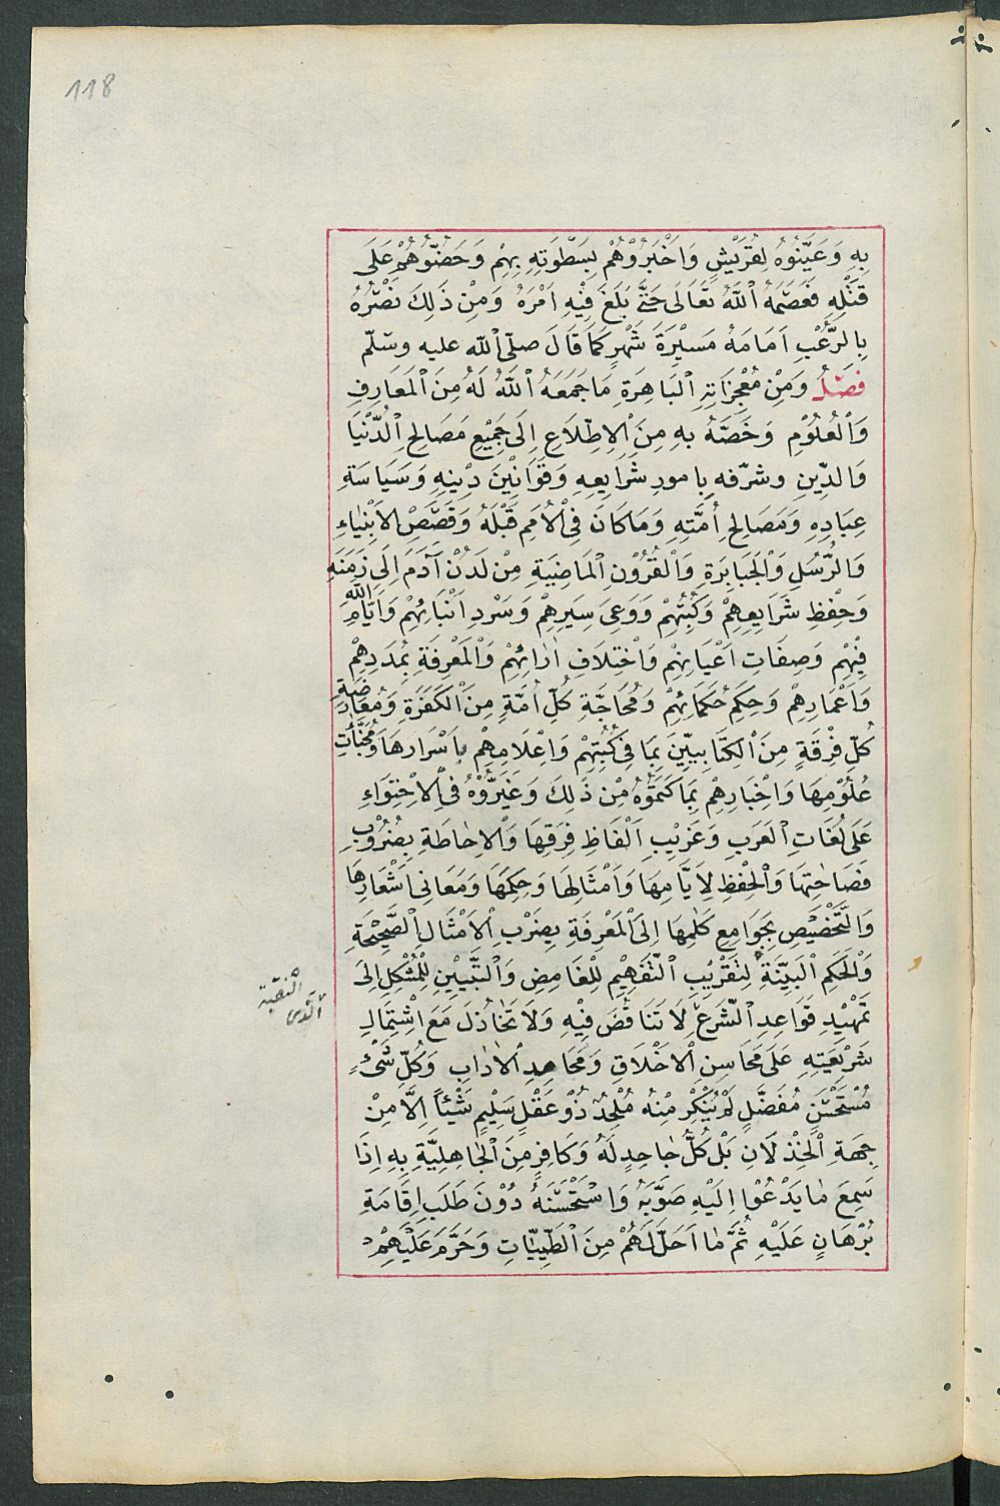 118
بِهِ وَعَيَّنُوهُ لِقُرَيْشٍ وَاَخْبَرُوْهُمْ بِسَطْوَتِهِ بِهِمْ وَحَضُّوُهُمْ عَلَى
قَتْلِهِ فَعَصَمَهُ اللّٰهُ تَعَالَى حَتَّى بَلَغَ فِيْهِ اَمْرَهُ وَمِنْ ذَلِكَ نَصْرُهُ
بِالرُّعْبِ اَمَامَهُ مَسِيْرَةَ شَهْرٍ كَمَا قَالَ صلّى اللّه عليه وسلّم
فَصْلٌ وَمِنْ مُعْجِزَاتِهِ الْبَاهِرَةِ مَا جَمَعَهُ اللّٰهُ لَهُ مِنَ الْمَعَارِفِ
وَالْعُلُوْمِ وَخَصَّهُ بِهِ مِنَ الْاِطِّلَاعِ اِلَى جَمِيْعِ مَصَالِحِ الدُّنْيَا
وَالدِّينِ وشرّفه بِامورِ شَرَايِعِهِ وَقَوَانِيْنَ دِيْنِهِ وَسَيَاسَةِ
عِبَادِهِ وَمَصَالِحِ اُمَّتِهِ وَمَا كَانَ فِى الْاُمَمِ قَبْلَهُ وَقَصَصِ الْاَنْبِيَاءِ
وَالرُّسُلِ وَالْجَبَابِرَةِ وَالْقُرُوْنِ الْمَاضِيَةِ مِنْ لَدُنْ آدَمَ اِلَى زَمَنِهِ
وَحِفْظِ شَرَايِعِهِمْ وَكُتُبِهِمْ وَوَعِىَ سِيَرِهِمْ وَسَرْدِ اَنْبَائِهِمْ وَاَيَّامِ اللّٰهِ
فِيْهِمْ وَصِفَاتِ اَعْيَانِهِمْ وَاخْتِلَافِ اٰرَائِهِمْ وَالْمَعْرِفَةِ بِمُدَدِهِمْ
وَاَعْمَارِهِمْ وَحِكَمِ حُكَمَائِهِمْ وَمُحَاجَّةِ كُلِّ اُمَّةٍ مِنَ الْكَفَرَةِ وَمُعَارَضَةِ
كُلِّ فِرْقَةٍ مِنَ الْكِتَابِيّيِنَ بِمَا فِى كُتُبِهِمْ وَاِعْلَامِهِمْ بِاَسْرَارِهَا وَمُخَبَّئاتِ
عُلُوْمِهَا وَاِخْبَارِهِمْ بِمَا كَتَمَوُهُ مِنْ ذَلِكَ وَغَيَرُّوْهُ فِى الْاِحْتِوَاءِ
عَلَى لُغَاتِ الْعَرَبِ وَغَرِيْبِ اَلْفَاظِ فِرَقِهَا وَالْاِحٰاطَةِ بِضُرُوْبِ
فَصَاحَتِهَا وَالْحِفْظِ لِاَيَّامِهَا وَاَمْثَالِهَا وَحِكَمِهَا وَمَعَانِى اَشْعَارِهَا
وَالتَّخْصِيْصِ بِجَوَامِعِ كَلِمِهَا اِلَى الْمَعْرِفَةِ بِضَرْبِ الْاَمْثَالِ الصَّحِيْحَةِ
وَالْحِكَمِ الْبَيِّنَةِ لِتَقْرِيْبِ التَّفْهِيْمِ لِلْغَامِضِ وَالتَّبْيِيْنِ لِلْمُشْكِلِ اِلَى
تَمْهِيْدِ قَوَاعِدِ الشَّرْعِ لَا تَنَاقُضَ فِيْهِ وَلَا تَخَاذُلَ مَعَ اشْتِمَالِ
شَرِيْعَتِهِ عَلَى مَحَاسِنِ الْاَخْلَاقِ وَمَحَامِدِ الْاٰدَابِ وَكُلِّ شَىْءٍ
مُسْتَحْسَنٍ مُفَضَّلٍ لَمْ يُنْكِرْ مِنْهُ مُلْحِدٌ ذُوْ عَقْلٍ سَلِيْمٍ شَيْئًا اِلَّا مِنْ
جِهَةِ الْخِذْلَانِ بَلْ كُلُّ جٰاحِدٍ لَهُ وَكَافِرٍ مِنَ الْجٰاهِلِيَّةِ بِهِ اِذَا
سَمِعَ مٰا يَدْعُوْا اِلَيْهِ صَوَّبَهُ وَاسْتَحْسَنَهُ دُوْنَ طَلَبِ اِقَامَةِ
بُرْهَانٍ عَلَيْهِ ثُمَّ مٰا اَحَلَّ لَهُمْ مِنَ الطَّيِّبٰاتِ وَحَرَّمَ عَلَيْهِمْ
الذى